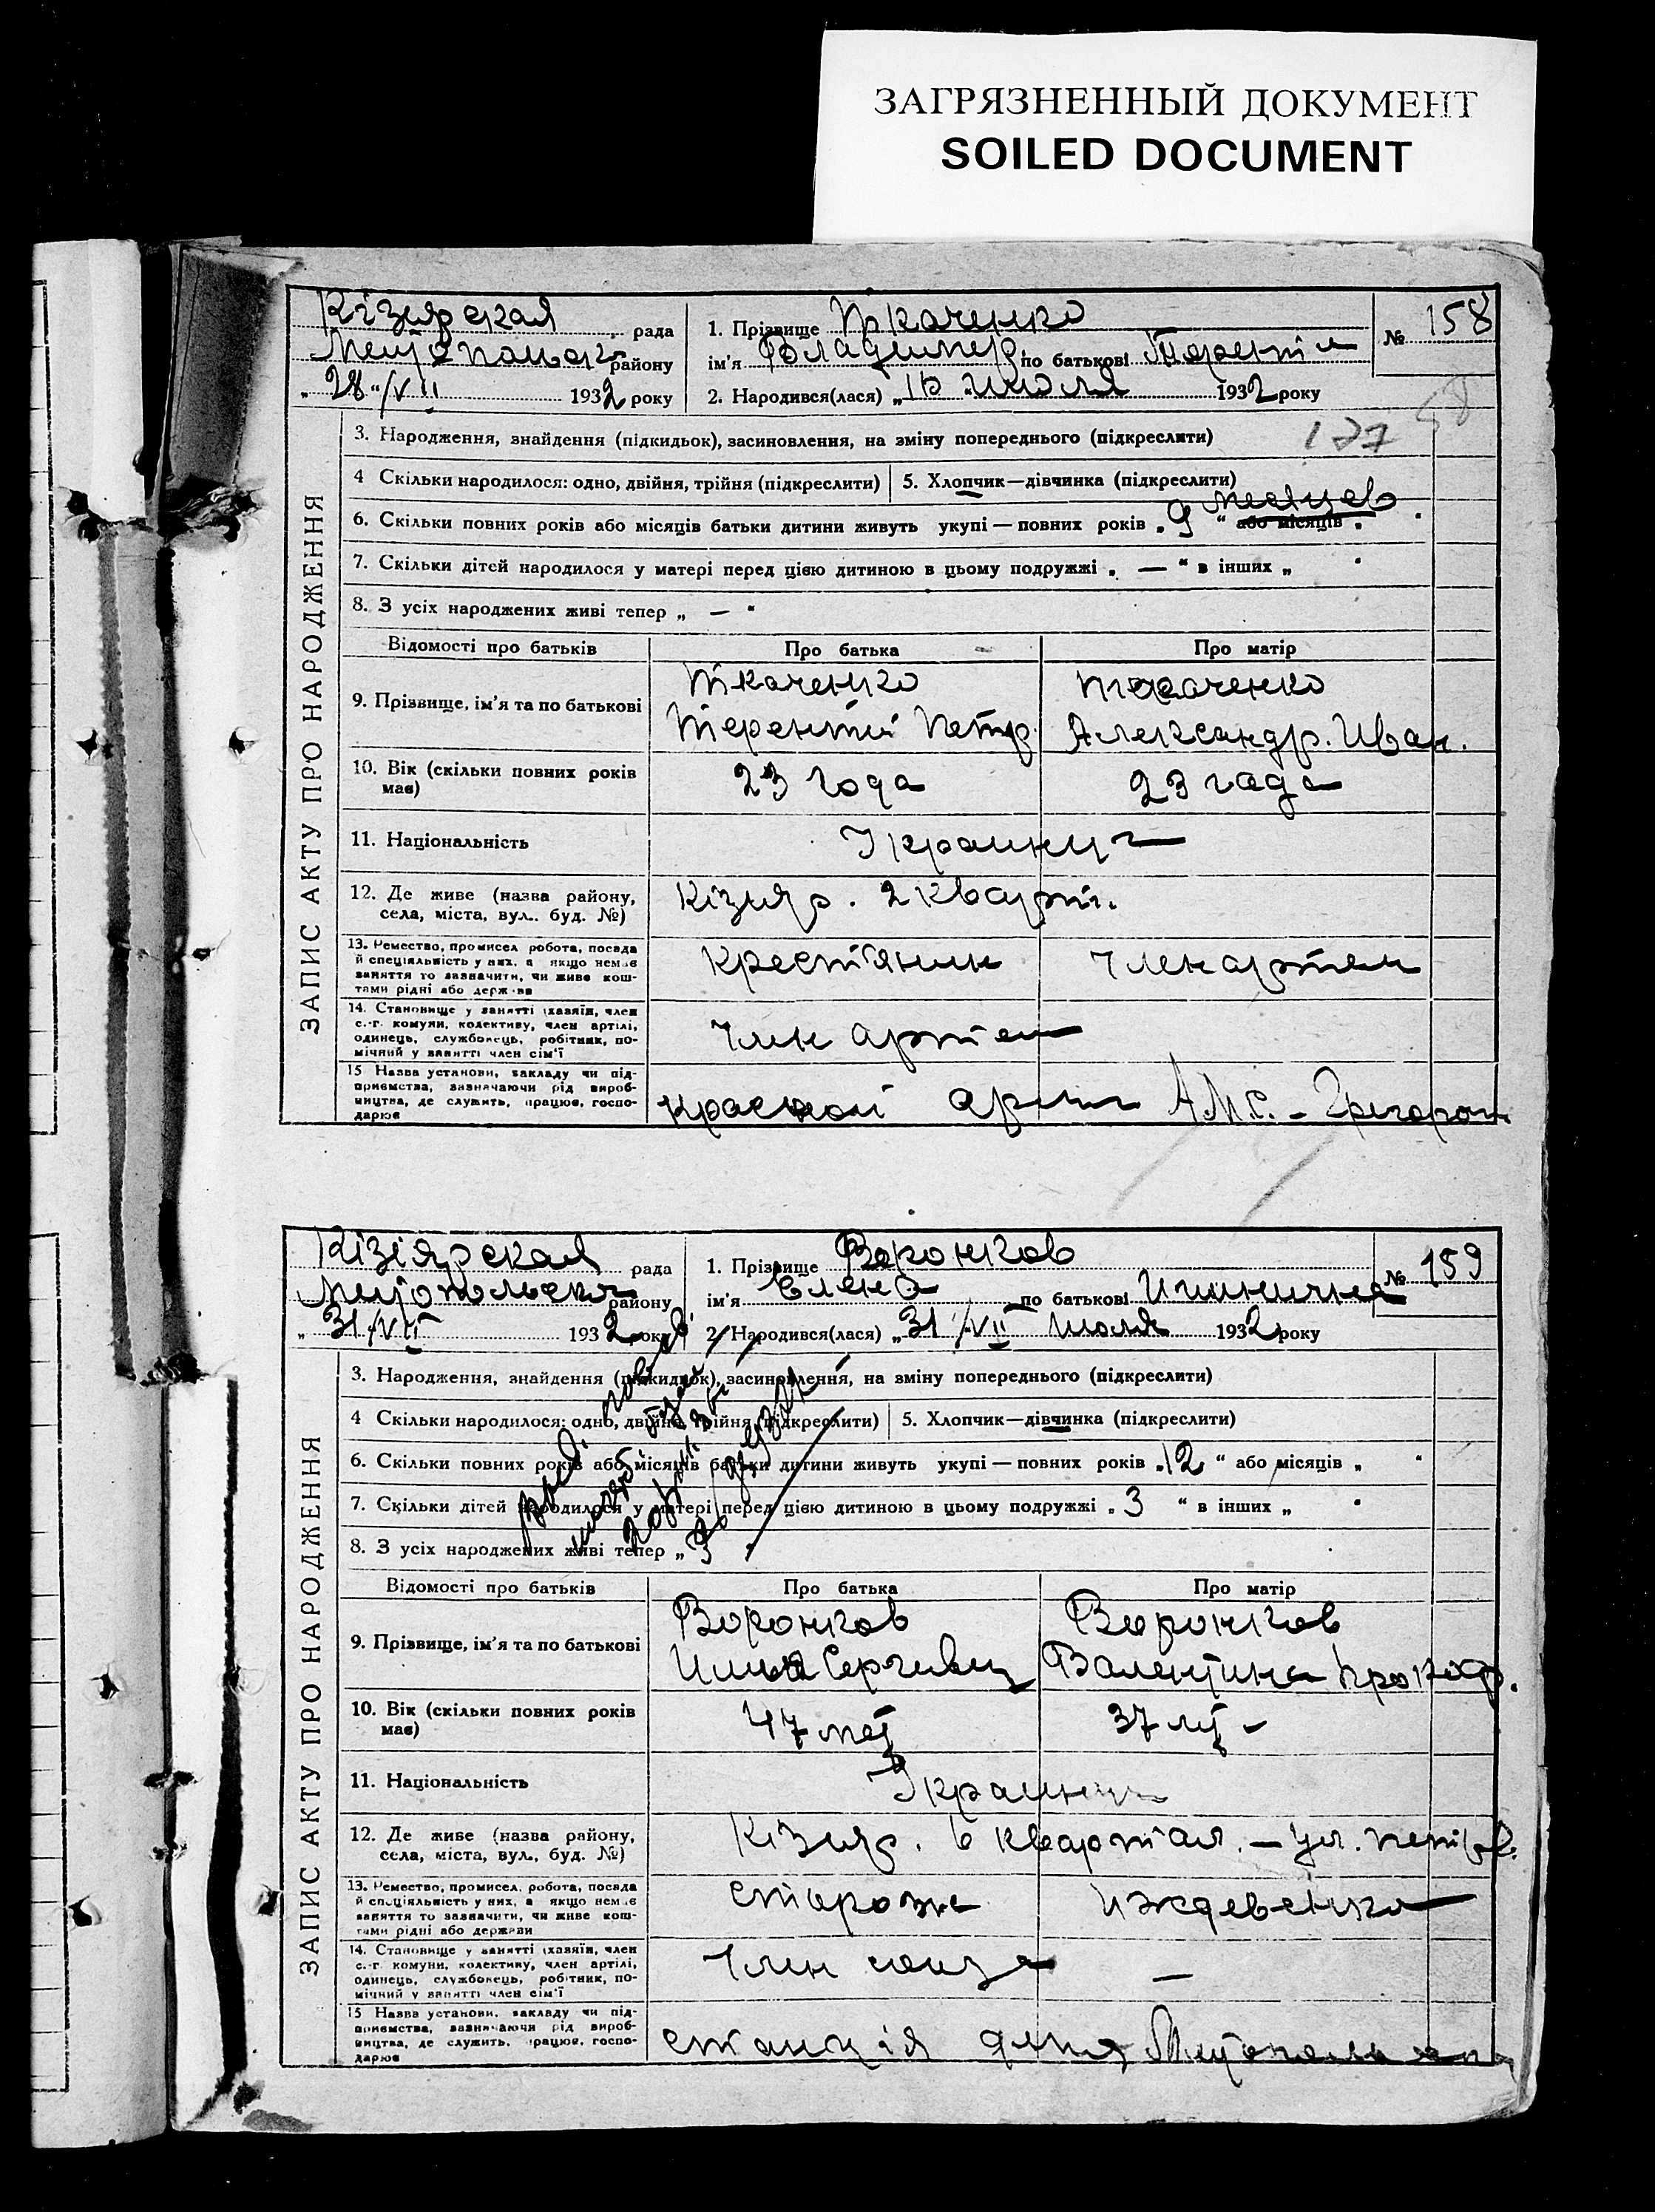 ЗАГРЯЗНЕННЫЙ ДОКУМЕНТ
SOILED DOCUMENT
ЗАПИС АКТУ ПРО НАРОДЖЕННЯ
Кізиярская рада
району
„28“/VII 1932 року
1. Прізвище Ткаченко
ім'я Владимир по батькові
2. Народився(лася) „ июля 1932 року
№ 158
3. Народження, знайдення (підкидьок), засиновлення, на зміну попереднього (підкреслити)
4 Скільки народилося: одно, двійня, трійня (підкреслити)
5. Хлопчик—дівчинка (підкреслити)
6. Скільки повних років або місяців батьки дитини живуть укупі — повних років „9“ або місяців „
7. Скільки дітей народилося у матері перед цією дитиною в цьому подружжі „ — “ в інших „ “
8. З усіх народжених живі тепер „ — “
Відомості про батьків
Про батька
Про матір
9. Прізвище, ім'я та по батькові
Ткаченко
Терентий Петр.
Ткаченко
Александр. Иван.
10. Вік (скільки повних років має)
23 года
23 года
11. Національність
Украинц
12. Де живе (назва району,
села, міста, вул. буд. №)
Кізияр. 2 Кварт.
13. Ремество, промисел робота, посада
й спеціяльність у них, а якщо немає
заняття то зазначити, чи живе кош-
тами рідні або держава
Крест'янин
Член артели
14. Становище у занятті (хазяїн, член
с.-г. комуни, колективу, член артілі,
одинець, службовець, робітник, по-
мічний у занятті член сім'ї
Член артели
15 Назва установи, закладу чи під-
приємства, зазначаючи рід вироб-
ництва, де служить, працює, госпо-
дарює
Красной
ЗАПИС АКТУ ПРО НАРОДЖЕННЯ
Кізіярская рада
Мелітопольско району
„31/VII 1932 року
1. Прізвище Воронков
ім'я Елена по батькові Илинична
2. Народився(лася) „31/VII июля 1932 року
№ 159
3. Народження, знайдення (підкидьок), засиновлення, на зміну попереднього (підкреслити)
4 Скільки народилося: одно, двійня, трійня (підкреслити)
5. Хлопчик—дівчинка (підкреслити)
6. Скільки повних років або місяців батьки дитини живуть укупі — повних років „12“ або місяців „ “
7. Скільки дітей народилося у матері перед цією дитиною в цьому подружжі „3“ в інших „ “
8. З усіх народжених живі тепер „3
Відомості про батьків
Про батька
Про матір
9. Прізвище, ім'я та по батькові
Воронков
Илья Сергивич
Воронков
Валентина Прокоф.
10. Вік (скільки повних років має)
47 лет
37 лет
11. Національність
Украинц
12. Де живе (назва району,
села, міста, вул., буд. №)
Кізияр. 6 квартал. — ул.
13. Ремество, промисел, робота, посада
й спеціяльність у них, а якщо немає
заняття то зазначити, чи живе кош-
тами рідні або держави
Сторож
Иждевенка
14. Становище у занятті (хазяїн, член
с.-г комуни, колективу, член артілі,
одинець, службовець, робітник, по-
мічний у занятті член сім'ї
Член союза
—
15 Назва установи, закладу чи під-
приємства, зазначаючи рід вироб-
ництва, де служить, працює, госпо-
дарює
станція